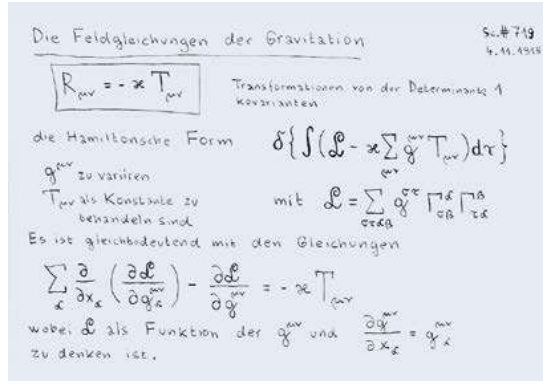 Die Feldgleichungen der Gravitation
Sc.#719
4.11.1915
R_μν = - ϰ T_μν
Transformationen von der Determinante 1
kovarianten
die Hamiltonsche Form
δ{∫(𝔏 - ϰ∑_μν g^μν T_μν)dτ}
g^μν zu variiren
T_μν als Konstante zu
behandeln sind
mit 𝔏 = ∑_στ𝛼β g^στ Γ^α_σβ Γ^β_τα
Es ist gleichbedeutend mit den Gleichungen
∑_α ∂/∂x_α (∂𝔏/∂g^μν_α) - ∂𝔏/∂g^μν = - ϰ T_μν
wobei 𝔏 als Funktion der g^μν und ∂g^μν/∂x_α = g^μν_α
zu denken ist.